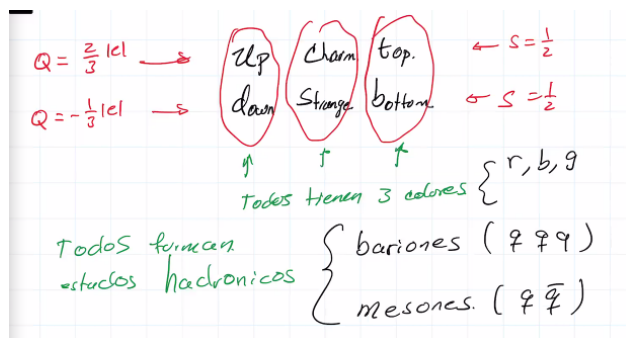 Q = 2/3 |e| → Up Charm top. ← S = 1/2
Q = -1/3 |e| → down Strange bottom ← S = 1/2
Todos tienen 3 colores { r, b, g
Todos forman
estados hadronicos
{ bariones ( q q q )
mesones. ( q q̄ )